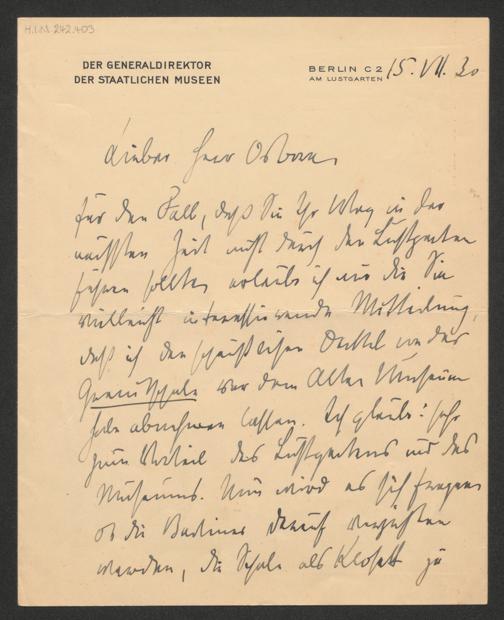 H.I.N. 242.403
DER GENERALDIREKTOR
DER STAATLICHEN MUSEEN
BERLIN C 2
AM LUSTGARTEN
15. VII. 30
Lieber Herr Osborn,
für den Fall, daß Sie Ihr Weg in der
nächsten Zeit nicht durch den Lustgarten
führen sollte, erlaube ich mir die Sie
vielleicht interessierende Mitteilung,
daß ich den scheußlichen Deckel von der
Granitschale vor dem Alten Museum
habe abnehmen lassen. Ich glaube: sehr
zum Vorteil des Lustgartens und des
Museums. Nun wird es sich fragen
ob die Berliner darauf verzichten
werden, die Schale als Klosett zu